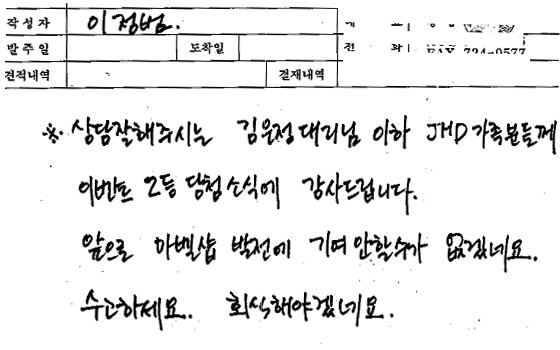 작성자 이정범.
발주일 도착일 전 화 FAX 734-0577
견적내역 결재내역
※. 상담잘해주시는 김윤정대리님 이하 JHD가족분들께
이벤트 2등 당첨소식에 감사드립니다.
앞으로 마벨샵 발전에 기여안할수가 없겠네요.
수고하세요. 회식해야겠네요.